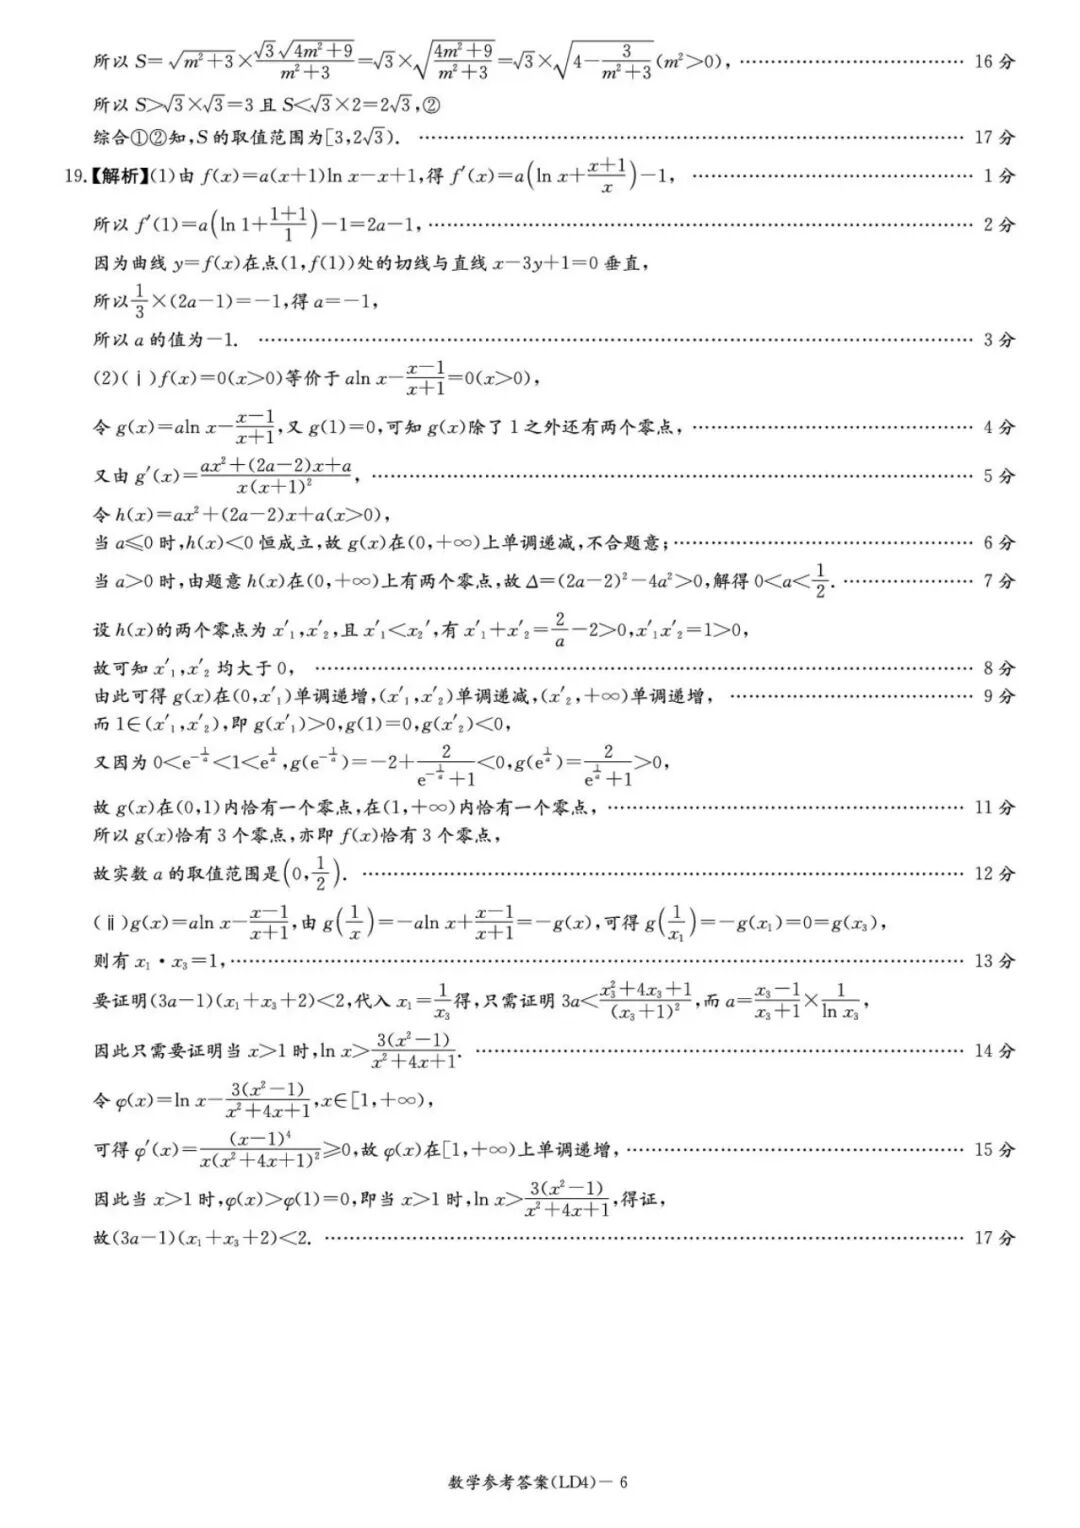 所以 S=√(m²+3)×(√3√(4m²+9))/(m²+3)=√3×√((4m²+9)/(m²+3))=√3×√(4−3/(m²+3))(m²>0),………… 16 分
所以 S>√3×√3=3 且 S<√3×2=2√3,②
综合①②知,S 的取值范围为[3,2√3). ………… 17 分
19.【解析】(1)由 f(x)=a(x+1)ln x−x+1,得 f′(x)=a(ln x+(x+1)/x)−1, ………… 1 分
所以 f′(1)=a(ln 1+(1+1)/1)−1=2a−1,………… 2 分
因为曲线 y=f(x)在点(1,f(1))处的切线与直线 x−3y+1=0 垂直,
所以1/3×(2a−1)=−1,得 a=−1,
所以 a 的值为−1. ………… 3 分
(2)(ⅰ)f(x)=0(x>0)等价于 aln x−(x−1)/(x+1)=0(x>0),
令 g(x)=aln x−(x−1)/(x+1),又 g(1)=0,可知 g(x)除了 1 之外还有两个零点,………… 4 分
又由 g′(x)=(ax²+(2a−2)x+a)/(x(x+1)²), ………… 5 分
令 h(x)=ax²+(2a−2)x+a(x>0),
当 a≤0 时,h(x)<0 恒成立,故 g(x)在(0,+∞)上单调递减,不合题意;………… 6 分
当 a>0 时,由题意 h(x)在(0,+∞)上有两个零点,故 Δ=(2a−2)²−4a²>0,解得 0<a<1/2. ………… 7 分
设 h(x)的两个零点为 x′₁,x′₂,且 x′₁<x₂′,有 x′₁+x′₂=2/a−2>0,x′₁x′₂=1>0,
故可知 x′₁,x′₂ 均大于 0, ………… 8 分
由此可得 g(x)在(0,x′₁)单调递增,(x′₁,x′₂)单调递减,(x′₂,+∞)单调递增, ………… 9 分
而 1∈(x′₁,x′₂),即 g(x′₁)>0,g(1)=0,g(x′₂)<0,
又因为 0<e^(−1/a)<1<e^(1/a),g(e^(−1/a))=−2+2/(e^(−1/a)+1)<0,g(e^(1/a))=2/(e^(1/a)+1)>0,
故 g(x)在(0,1)内恰有一个零点,在(1,+∞)内恰有一个零点,………… 11 分
所以 g(x)恰有 3 个零点,亦即 f(x)恰有 3 个零点,
故实数 a 的取值范围是(0,1/2). ………… 12 分
(ⅱ)g(x)=aln x−(x−1)/(x+1),由 g(1/x)=−aln x+(x−1)/(x+1)=−g(x),可得 g(1/x₁)=−g(x₁)=0=g(x₃),
则有 x₁·x₃=1,………… 13 分
要证明(3a−1)(x₁+x₃+2)<2,代入 x₁=1/x₃得,只需证明 3a<(x₃²+4x₃+1)/(x₃+1)²,而 a=(x₃−1)/(x₃+1)×1/(ln x₃),
因此只需要证明当 x>1 时,ln x>3(x²−1)/(x²+4x+1). ………… 14 分
令 φ(x)=ln x−3(x²−1)/(x²+4x+1),x∈[1,+∞),
可得 φ′(x)=(x−1)⁴/(x(x²+4x+1)²)≥0,故 φ(x)在[1,+∞)上单调递增,………… 15 分
因此当 x>1 时,φ(x)>φ(1)=0,即当 x>1 时,ln x>3(x²−1)/(x²+4x+1),得证,
故(3a−1)(x₁+x₃+2)<2. ………… 17 分
数学参考答案(LD4)− 6